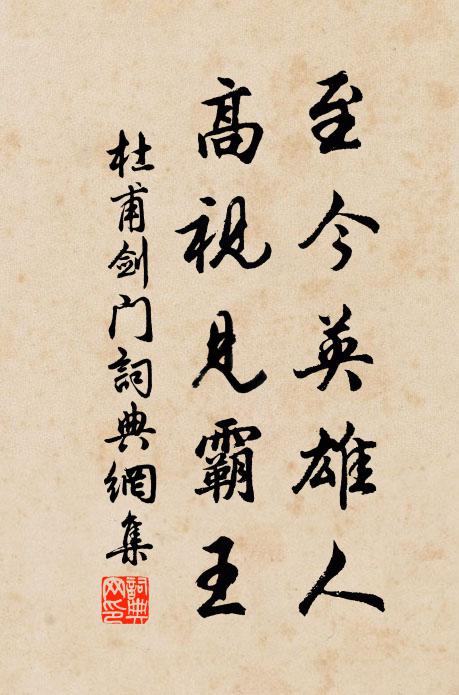 至今英雄人
高視見霸王
杜甫劍门詞典網集
詞典网印